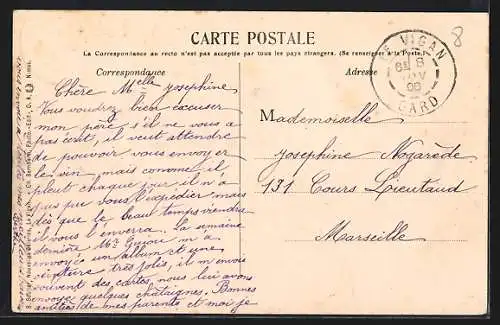 CARTE POSTALE
La Correspondance au recto n'est pas acceptée par tous les pays étrangers. (Se renseigner à la Poste.)
Correspondance
Adresse
LE VIGAN
8
GARD
8
Chère Melle Josephine
Vous voudrez bien excuser
mon père s'il ne vous a
pas écrit, il veut attendre
de pouvoir vous envoyer
le vin, mais comme il
pleut chaque jour il n'a
pas pu vous l'expédier mais
dès que le beau temps viendra
il vous l'enverra. La semaine
dernière Mr Guyou m'a
envoyée un album et une
ceinture très jolis, il m'envoie
souvent des cartes, nous lui avons
envoyé quelques châtaignes. Bonnes
amitiés de mes parents et moi je
Mademoiselle
Josephine Nogarède
131 Cours Lieutaud
Marseille